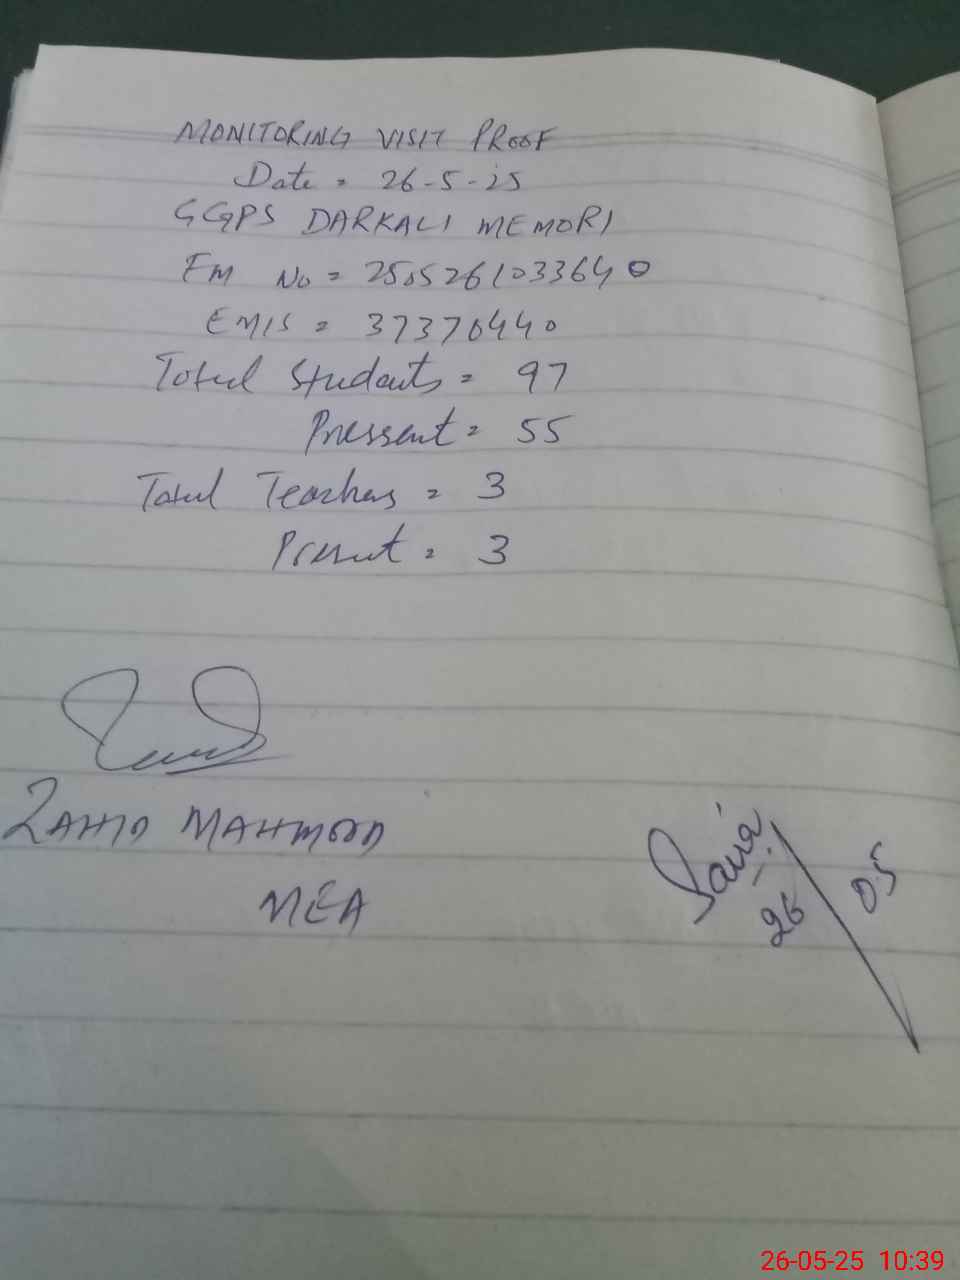 MONITORING VISIT PROOF
Date = 26-5-25
GGPS DARKALI MEMORI
FM No = 2505261033640
EMIS = 37370440
Total Students = 97
Pressent = 55
Total Teachers = 3
Present = 3
ZAHID MAHMOOD
MEA
Saira
26/05
26-05-25 10:39